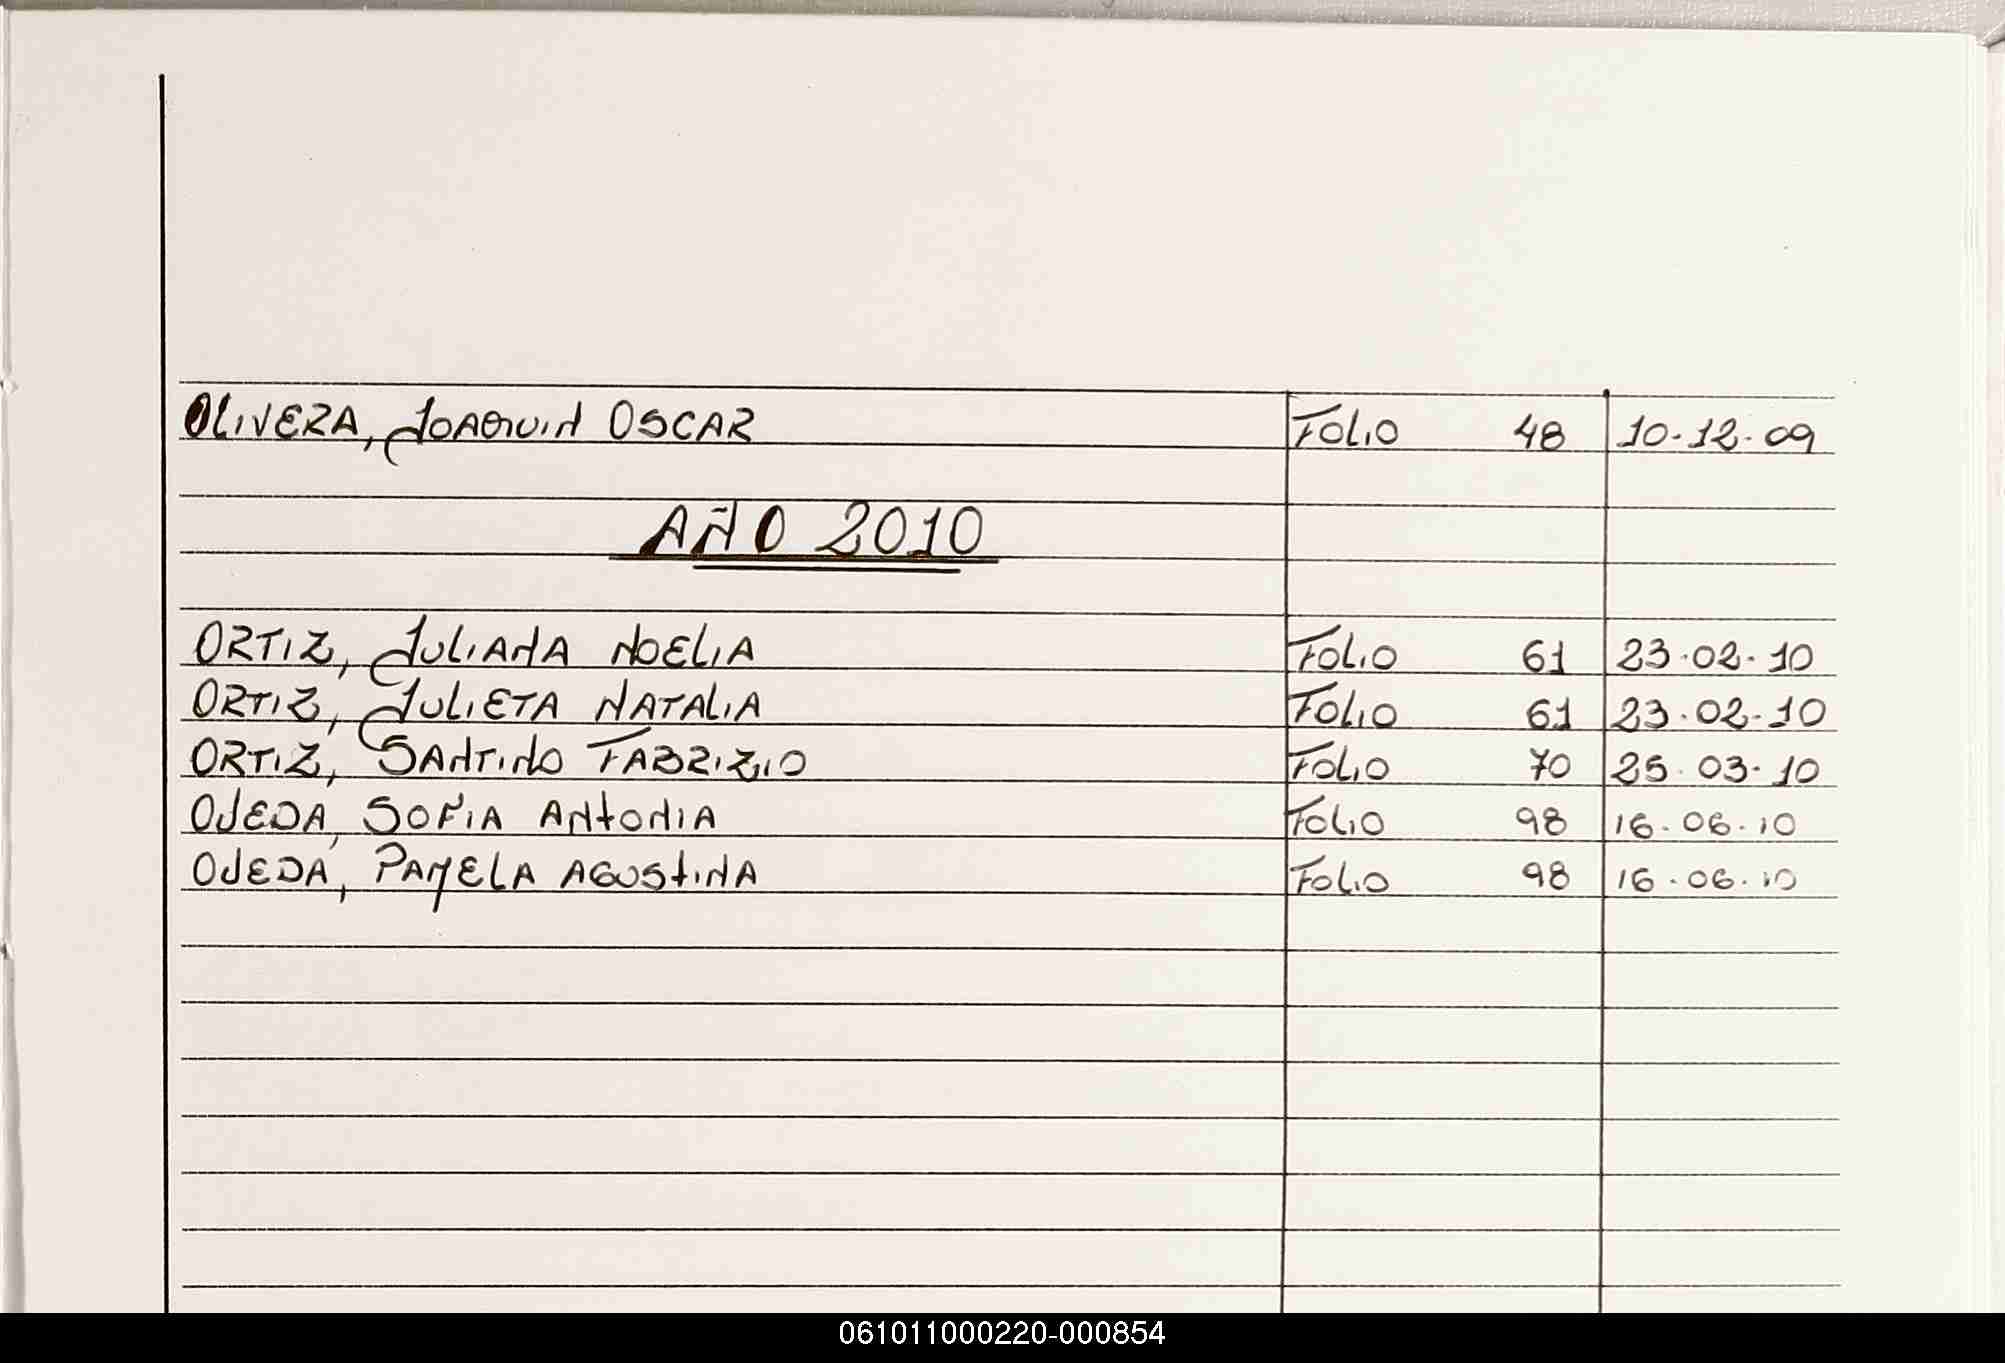 OLIVERA, JOAQUIN OSCAR FOLIO 48 10.12.09
AÑO 2010
ORTIZ, JULIANA NOELIA FOLIO 61 23.02.10
ORTIZ, JULIETA NATALIA FOLIO 61 23.02.10
ORTIZ, SANTINO FABRIZIO FOLIO 70 25.03.10
OJEDA, SOFIA ANTONIA FOLIO 98 16.06.10
OJEDA, PAMELA AGUSTINA FOLIO 98 16.06.10
061011000220-000854